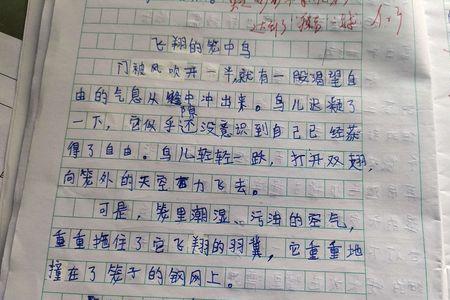 飞翔的笼中鸟
门被风吹开一半,就有一股渴望自
由的气息从缝隙中冲出来。鸟儿迟疑了
一下，它似乎还没意识到自己已经获
得了自由。鸟儿轻轻一跃，打开双翅，
向笼外的天空奋力飞去。
可是，笼里潮湿、污浊的空气，
重重拖住了它飞翔的羽翼，它重重地
撞在了笼子的钢网上。